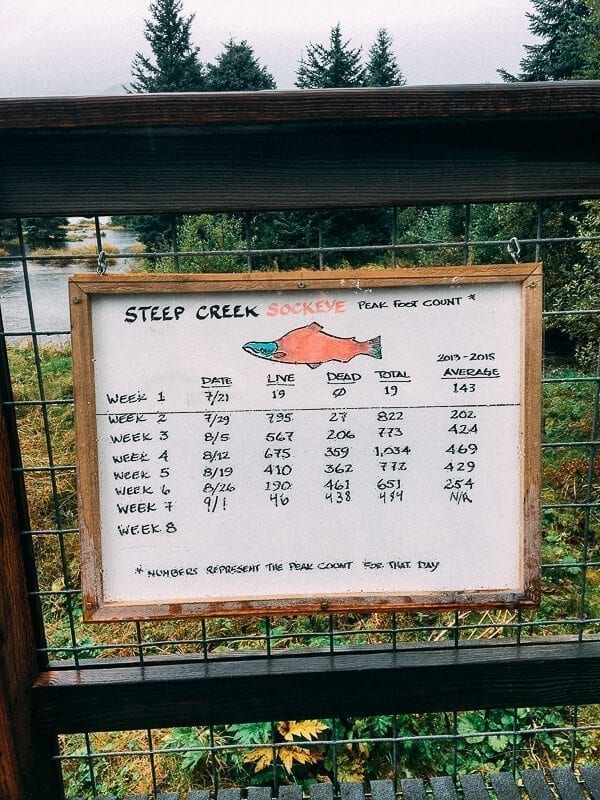 STEEP CREEK SOCKEYE PEAK FOOT COUNT *
DATE LIVE DEAD TOTAL 2013-2015 AVERAGE
WEEK 1 7/21 19 Ø 19 143
WEEK 2 7/29 795 27 822 202
WEEK 3 8/5 567 206 773 424
WEEK 4 8/12 675 359 1,034 469
WEEK 5 8/19 410 362 772 429
WEEK 6 8/26 190 461 651 254
WEEK 7 9/1 46 438 484 N/A
WEEK 8
* NUMBERS REPRESENT THE PEAK COUNT FOR THAT DAY